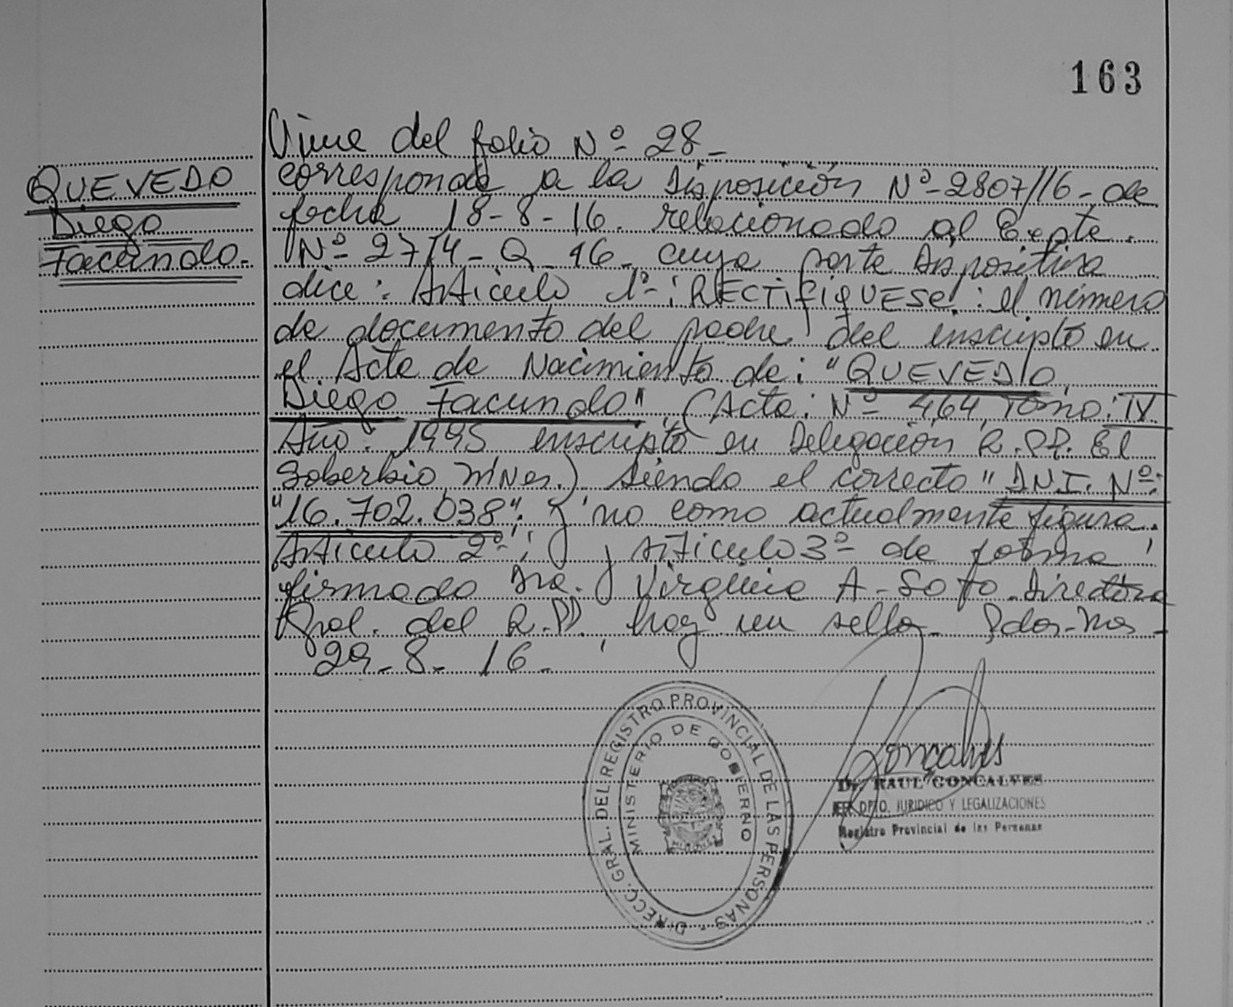 163
QUEVEDO
Diego
Facundo.
Viene del folio Nº 28-
corresponde a la Disposición Nº-2807/16-de
fecha 18-8-16. relacionado al Expte.
Nº-2774-Q-16- cuya parte dispositiva
dice: Artículo 1º-: RECTIFIQUESE!: el número
de documento del padre del inscripto en
el Acta de Nacimiento de: "QUEVEDO
Diego Facundo", (Acta: Nº- 464, Tomo: IV.
Año: 1995 inscripto en Delegación R.PP. El
Soberbio Mnes.) siendo el correcto "DNI. Nº:
"16.702.038". y no como actualmente figura.
Artículo 2º; y Artículo 3º- de forma
firmado Dra. Virginia A- Soto-Directora
Gral. del R.PP. hay un sello- Pdas-Mns-
29-8-16-
DIRECC. GRAL. DEL REGISTRO PROVINCIAL DE LAS PERSONAS
MINISTERIO DE GOBIERNO
Goncalves
Dr. RAUL GONCALVES
JEFE DPTO. JURIDICO Y LEGALIZACIONES
Registro Provincial de las Personas